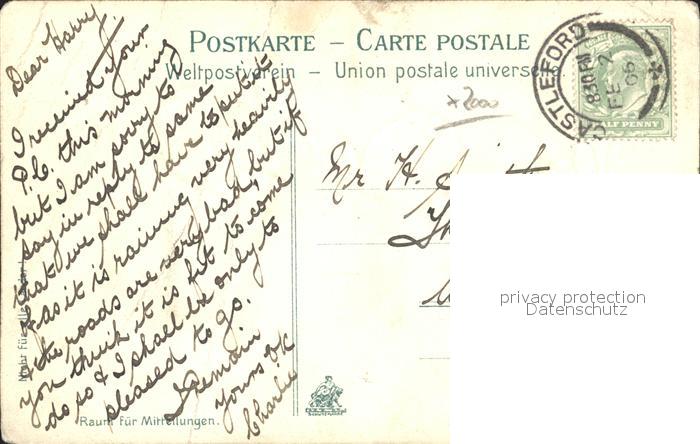 POSTKARTE – CARTE POSTALE
Weltpostverein – Union postale universelle
CASTLEFORD
830 AM
FE 2
05
HALF PENNY
x 2000
Dear Harry
I received your
P.C. this morning
but I am sorry to
say in reply to same
that we shall have to put it
off as it is raining very heavily
& the roads are very bad, but if
you think it is fit to come
do so & I shall be only to
pleased to go.
I Remain
Yours OK
Charlie
Mr H.
Nicht für alle Länder
Raum für Mitteilungen.
privacy protection
Datenschutz